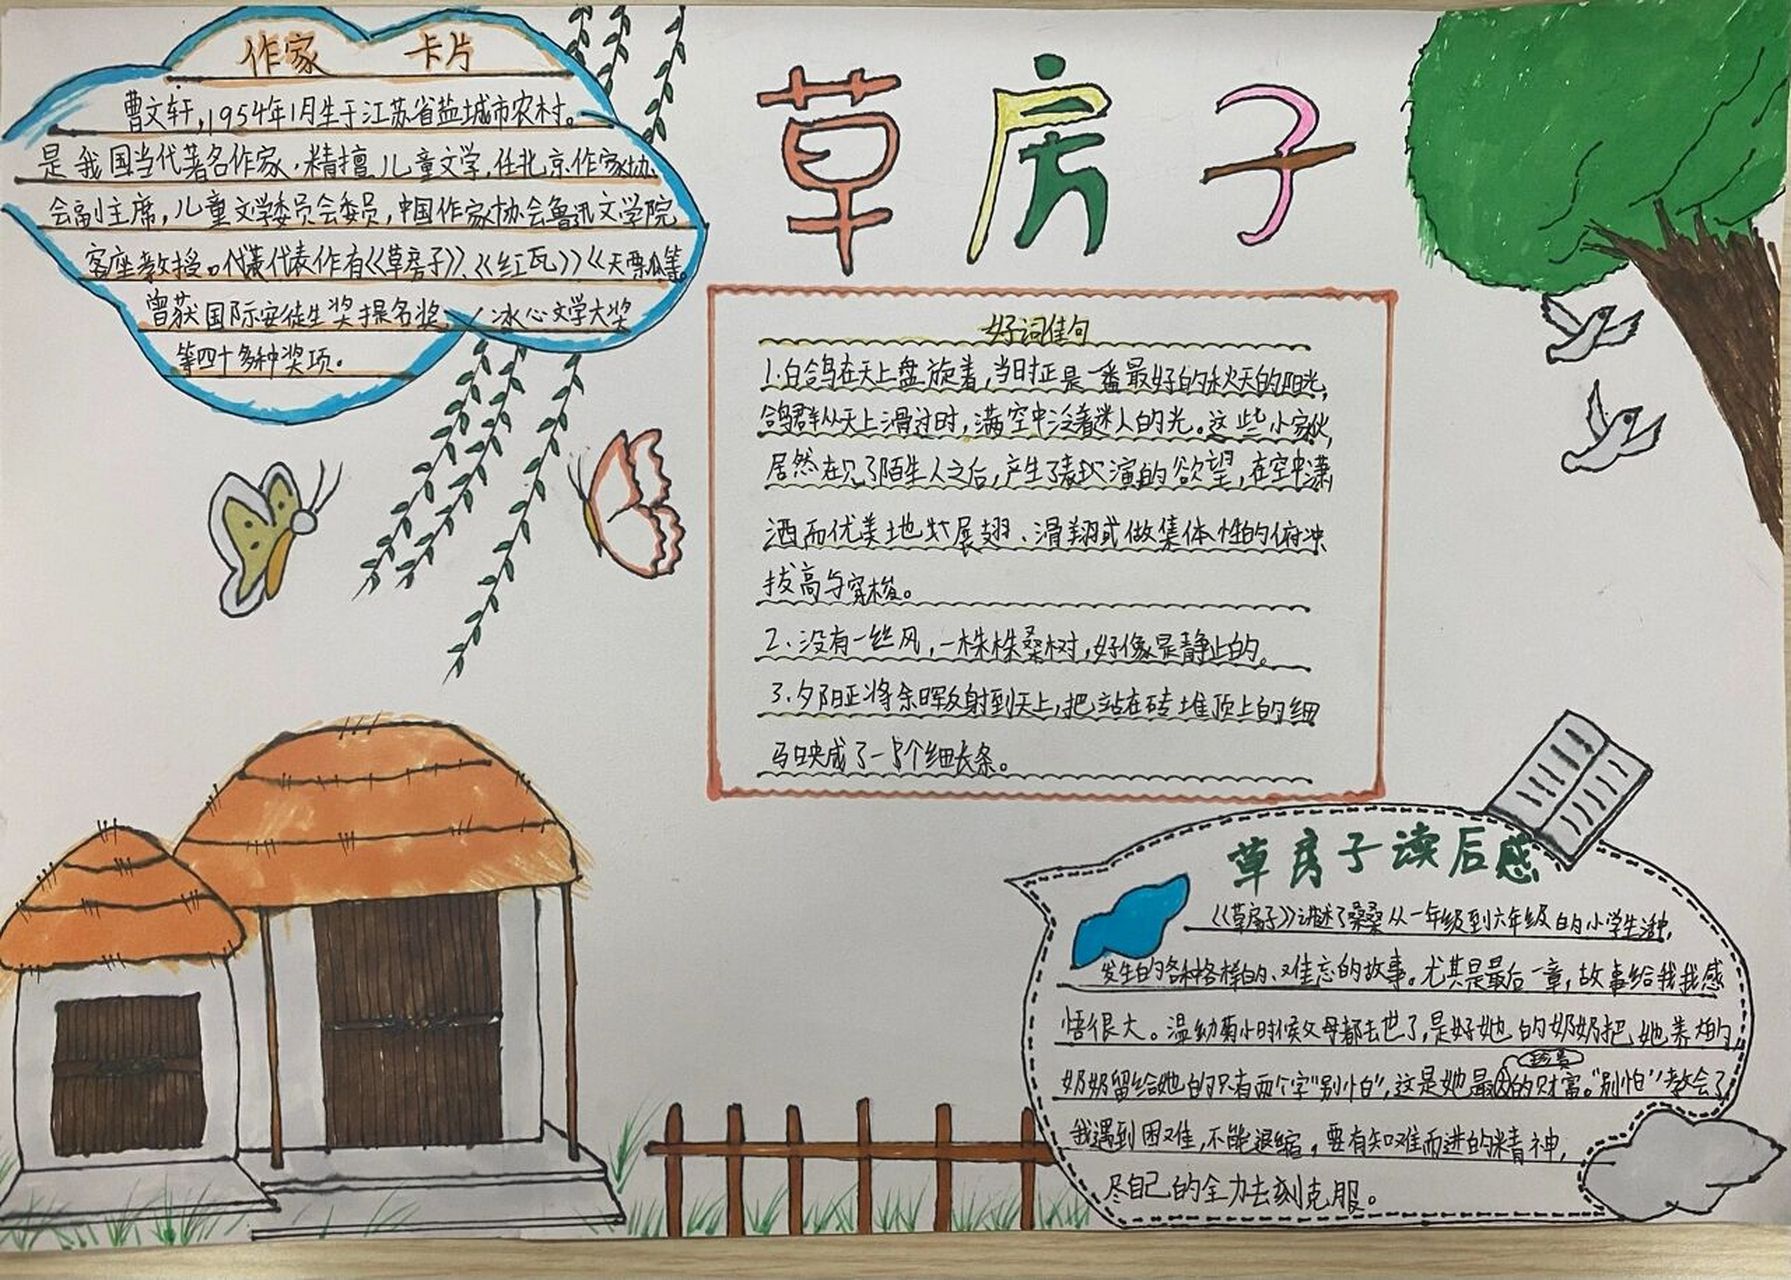 作家 卡片
曹文轩,1954年1月生于江苏省盐城市农村。
是我国当代著名作家.精擅儿童文学,任北京作家协
会副主席,儿童文学委员会委员,中国作家协会鲁迅文学院
客座教授。代表代表作有《草房子》、《红瓦》《天瓢》等。
曾获国际安徒生奖提名奖、冰心文学大奖
等四十多种奖项。
草房子
好词佳句
1.白鸽在天上盘旋着,当时正是一番最好的秋天的阳光,
鸽群从天上滑过时,满空中泛着迷人的光。这些小家伙,
居然在见了陌生人之后,产生了表现演的欲望,在空中潇
洒而优美地展翅、滑翔或做集体性的俯冲
拔高与穿梭。
2、没有一丝风,一株株桑树,好像是静止的。
3.夕阳正将余晖反射到天上,把站在砖堆顶上的细
马映成了一个细长条。
草房子读后感
《草房子》讲述了桑桑从一年级到六年级的小学生活中,
发生的各种各样的、难忘的故事。尤其是最后一章,故事给我我感
悟很大。温幼菊小时候父母都去世了,是好她的奶奶把她养大的,
奶奶留给她的只有两个字“别怕”,这是她最珍贵的财富。“别怕”教会了
我遇到困难,不能退缩,要有知难而进的精神,
尽自己的全力去刻克服。